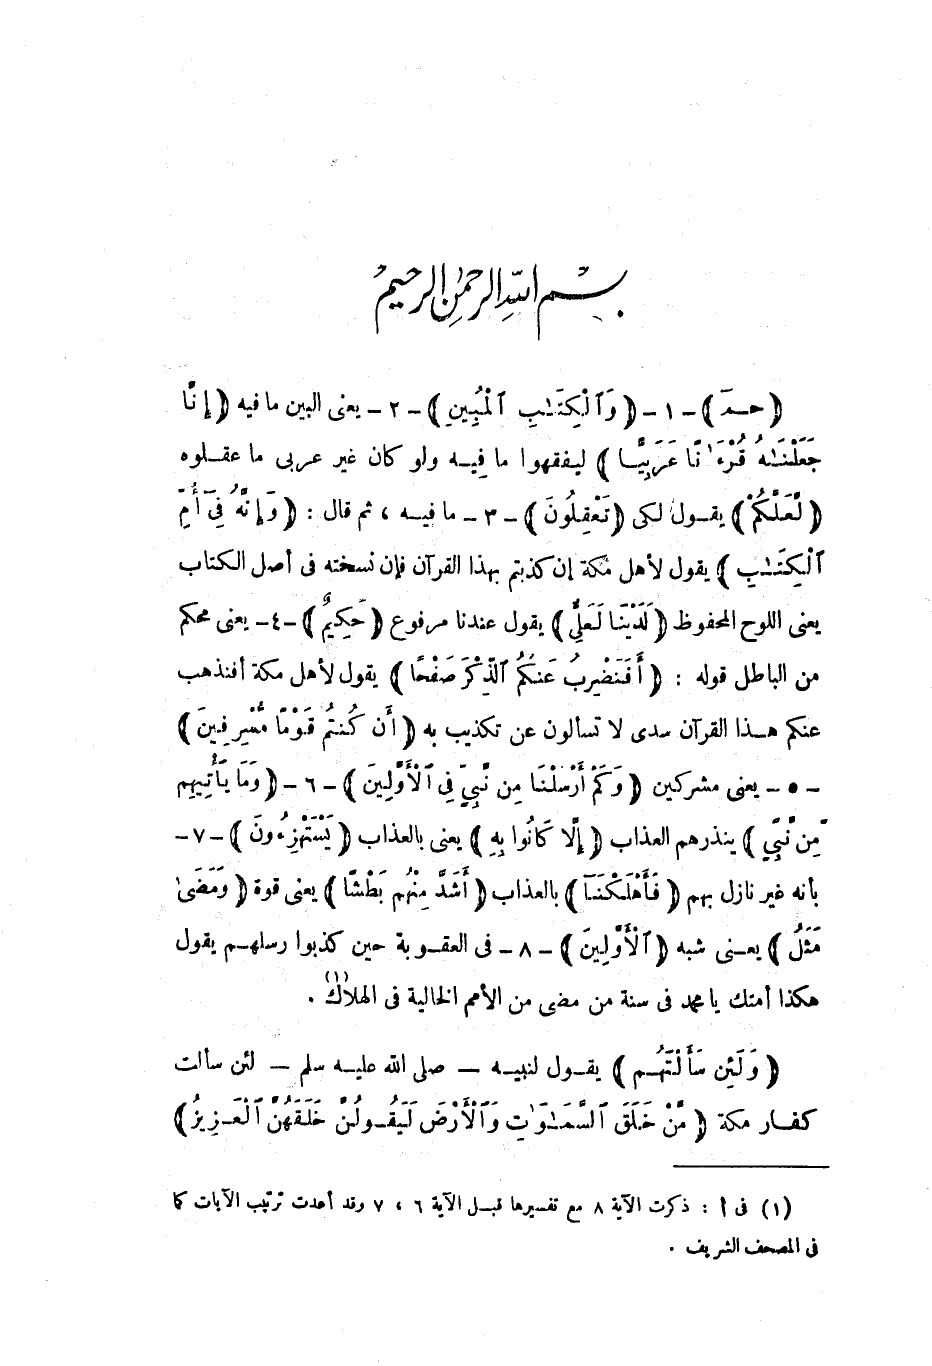 بسم الله الرحمن الرحيم
﴿ حـمٓ ﴾ -١- ﴿ وَٱلْكِتَـٰبِ ٱلْمُبِينِ ﴾ -٢- يعنى البين ما فيه ﴿ إِنَّا
جَعَلْنَـٰهُ قُرْءَٰنًا عَرَبِيًّـا ﴾ ليفقهوا ما فِيـه ولو كان غير عربى ما عقـلوه
﴿ لَّعَلَّكُمْ ﴾ يقـول لكى ﴿ تَعْقِلُونَ ﴾ -٣- ما فيـه ، ثم قال : ﴿ وَإِنَّهُ فِىٓ أُمِّ
ٱلْكِتَـٰبِ ﴾ يقول لأهل مكة إن كذبتم بهذا القرآن فإن نسخته فى أصل الكتاب
يعنى اللوح المحفوظ ﴿ لَدَيْنَا لَعَلِىٌّ ﴾ يقول عندنا مرفوع ﴿ حَكِيمٌ ﴾ -٤- يعنى محكم
من الباطل قوله : ﴿ أَفَنَضْرِبُ عَنكُمُ ٱلذِّكْرَ صَفْحًا ﴾ يقول لأهل مكة أفنذهب
عنكم هـذا القرآن سدى لا تسألون عن تكذيب به ﴿ أَن كُنتُمْ قَوْمًا مُّسْرِفِينَ ﴾
-٥- يعنى مشركين ﴿ وَكَمْ أَرْسَلْنَا مِن نَّبِىٍّ فِى ٱلْأَوَّلِينَ ﴾ -٦- ﴿ وَمَا يَأْتِيهِم
مِّن نَّبِىٍّ ﴾ ينذرهم العذاب ﴿ إِلَّا كَانُوا بِهِ ﴾ يعنى بالعذاب ﴿ يَسْتَهْزِءُونَ ﴾ -٧-
بأنه غير نازل بهم ﴿ فَأَهْلَكْنَـآ ﴾ بالعذاب ﴿ أَشَدَّ مِنْهُم بَطْشًا ﴾ يعنى قوة ﴿ وَمَضَىٰ
مَثَلُ ﴾ يعـنى شبه ﴿ ٱلْأَوَّلِينَ ﴾ -٨- فى العقـوبة حين كذبوا رسلهـم يقول
هكذا أمتك يا محمد فى سنة من مضى من الأمم الخالية فى الهلاك (١) .
﴿ وَلَئِن سَأَلْتَهُـم ﴾ يقـول لنبيـه — صلى الله عليـه سلم — لئن سألت
كفـار مكة ﴿ مَّنْ خَلَقَ ٱلسَّمَـٰوَٰتِ وَٱلْأَرْضَ لَيَقُـولُنَّ خَلَقَهُنَّ ٱلْعَـزِيزُ ﴾
(١) فى أ : ذكرت الآية ٨ مع تفسيرها قبـل الآية ٦ ، ٧ وقد أعدت ترتيب الآيات كما
فى المصحف الشريف .